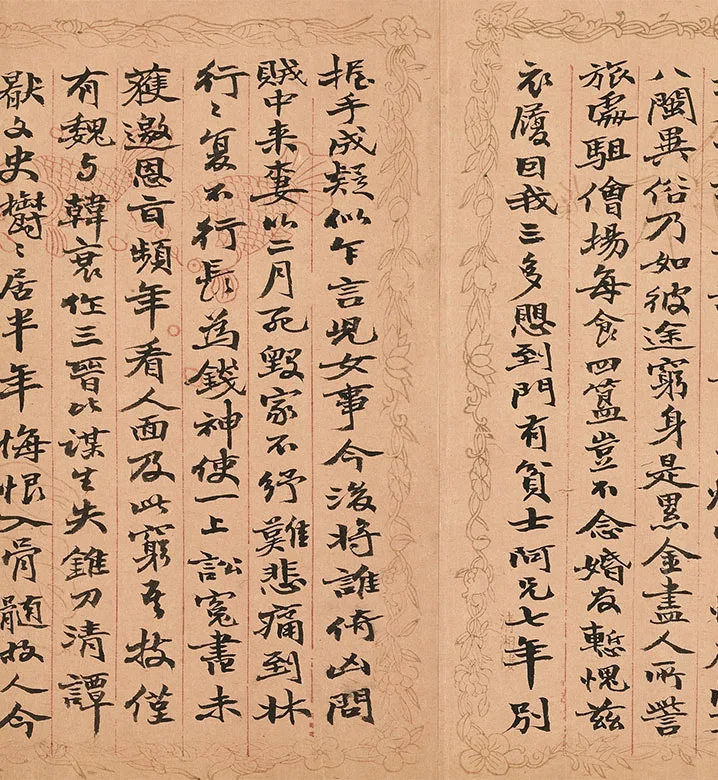 八閩異俗乃如彼途窮身是累金盡人所訾
旅處駔儈場每食四簋豈不念婚友慙愧茲
衣履因我三多愳到門有貧士阿兄七年別
握手成疑似乍言児女事今後将誰倚凶問
賊中来妻以二月死毀家不紓難悲痛到牀
行〻复不行長為錢神使一上訟冤書未
獲邀恩旨頻年看人面及此窮吾技僅
有魏与韓衰作三晉比謀生失錐刀清譚
厭文史鬱〻居半年悔恨入骨髄故人今